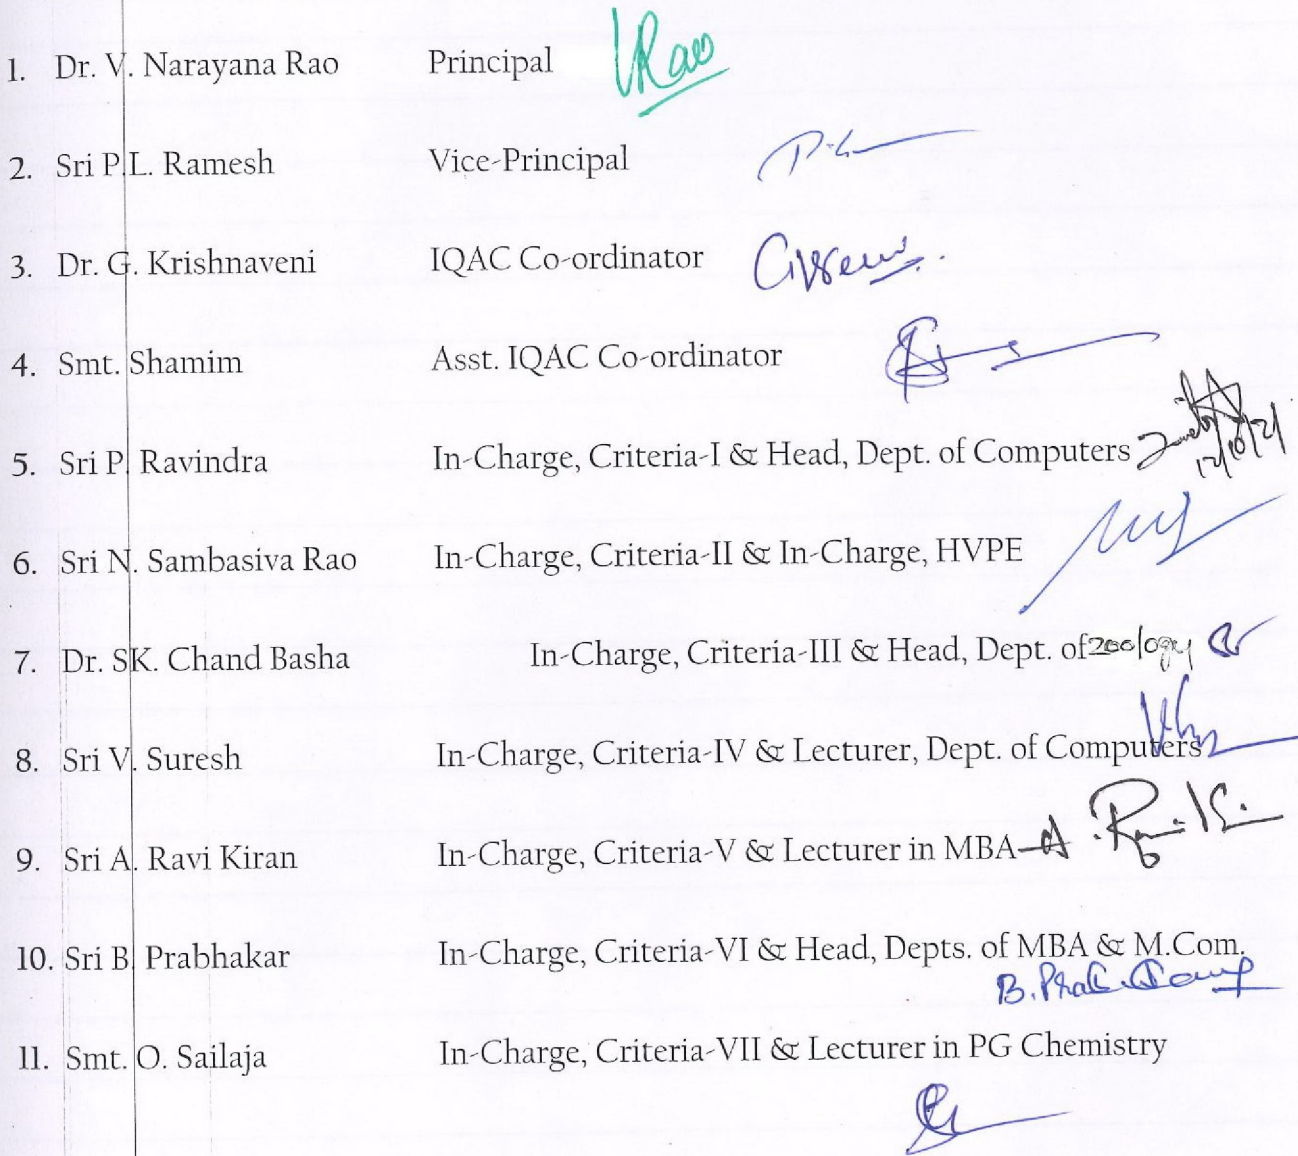 1. Dr. V. Narayana Rao Principal VRao
2. Sri P.L. Ramesh Vice-Principal
3. Dr. G. Krishnaveni IQAC Co-ordinator
4. Smt. Shamim Asst. IQAC Co-ordinator
5. Sri P. Ravindra In-Charge, Criteria-I & Head, Dept. of Computers 12/10/21
6. Sri N. Sambasiva Rao In-Charge, Criteria-II & In-Charge, HVPE
7. Dr. SK. Chand Basha In-Charge, Criteria-III & Head, Dept. of zoology
8. Sri V. Suresh In-Charge, Criteria-IV & Lecturer, Dept. of Computers
9. Sri A. Ravi Kiran In-Charge, Criteria-V & Lecturer in MBA
10. Sri B. Prabhakar In-Charge, Criteria-VI & Head, Depts. of MBA & M.Com.
11. Smt. O. Sailaja In-Charge, Criteria-VII & Lecturer in PG Chemistry